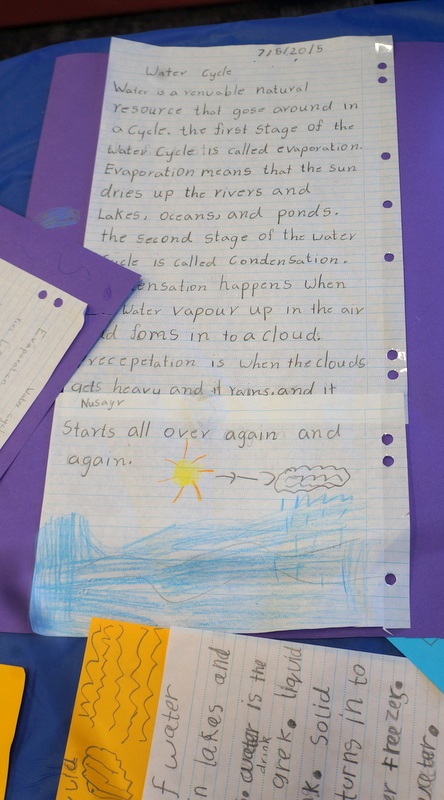 7/5/2015
Water Cycle
Water is a renuable natural
resource that gose around in
a Cycle. the first stage of the
Water Cycle is called evaporation.
Evaporation means that the sun
dries up the rivers and
Lakes, oceans, and ponds.
the second stage of the water
cycle is called Condensation.
ensation happens when
Water vapour up in the air
d foms in to a cloud.
recepetation is when the clouds
gets heavy and it rains. and it
Nusayr
Starts all over again and
again.
Evaporation
f water
n lakes and
water is the
drink
liquid
k. Solid
turns in to
er freezer.
water.